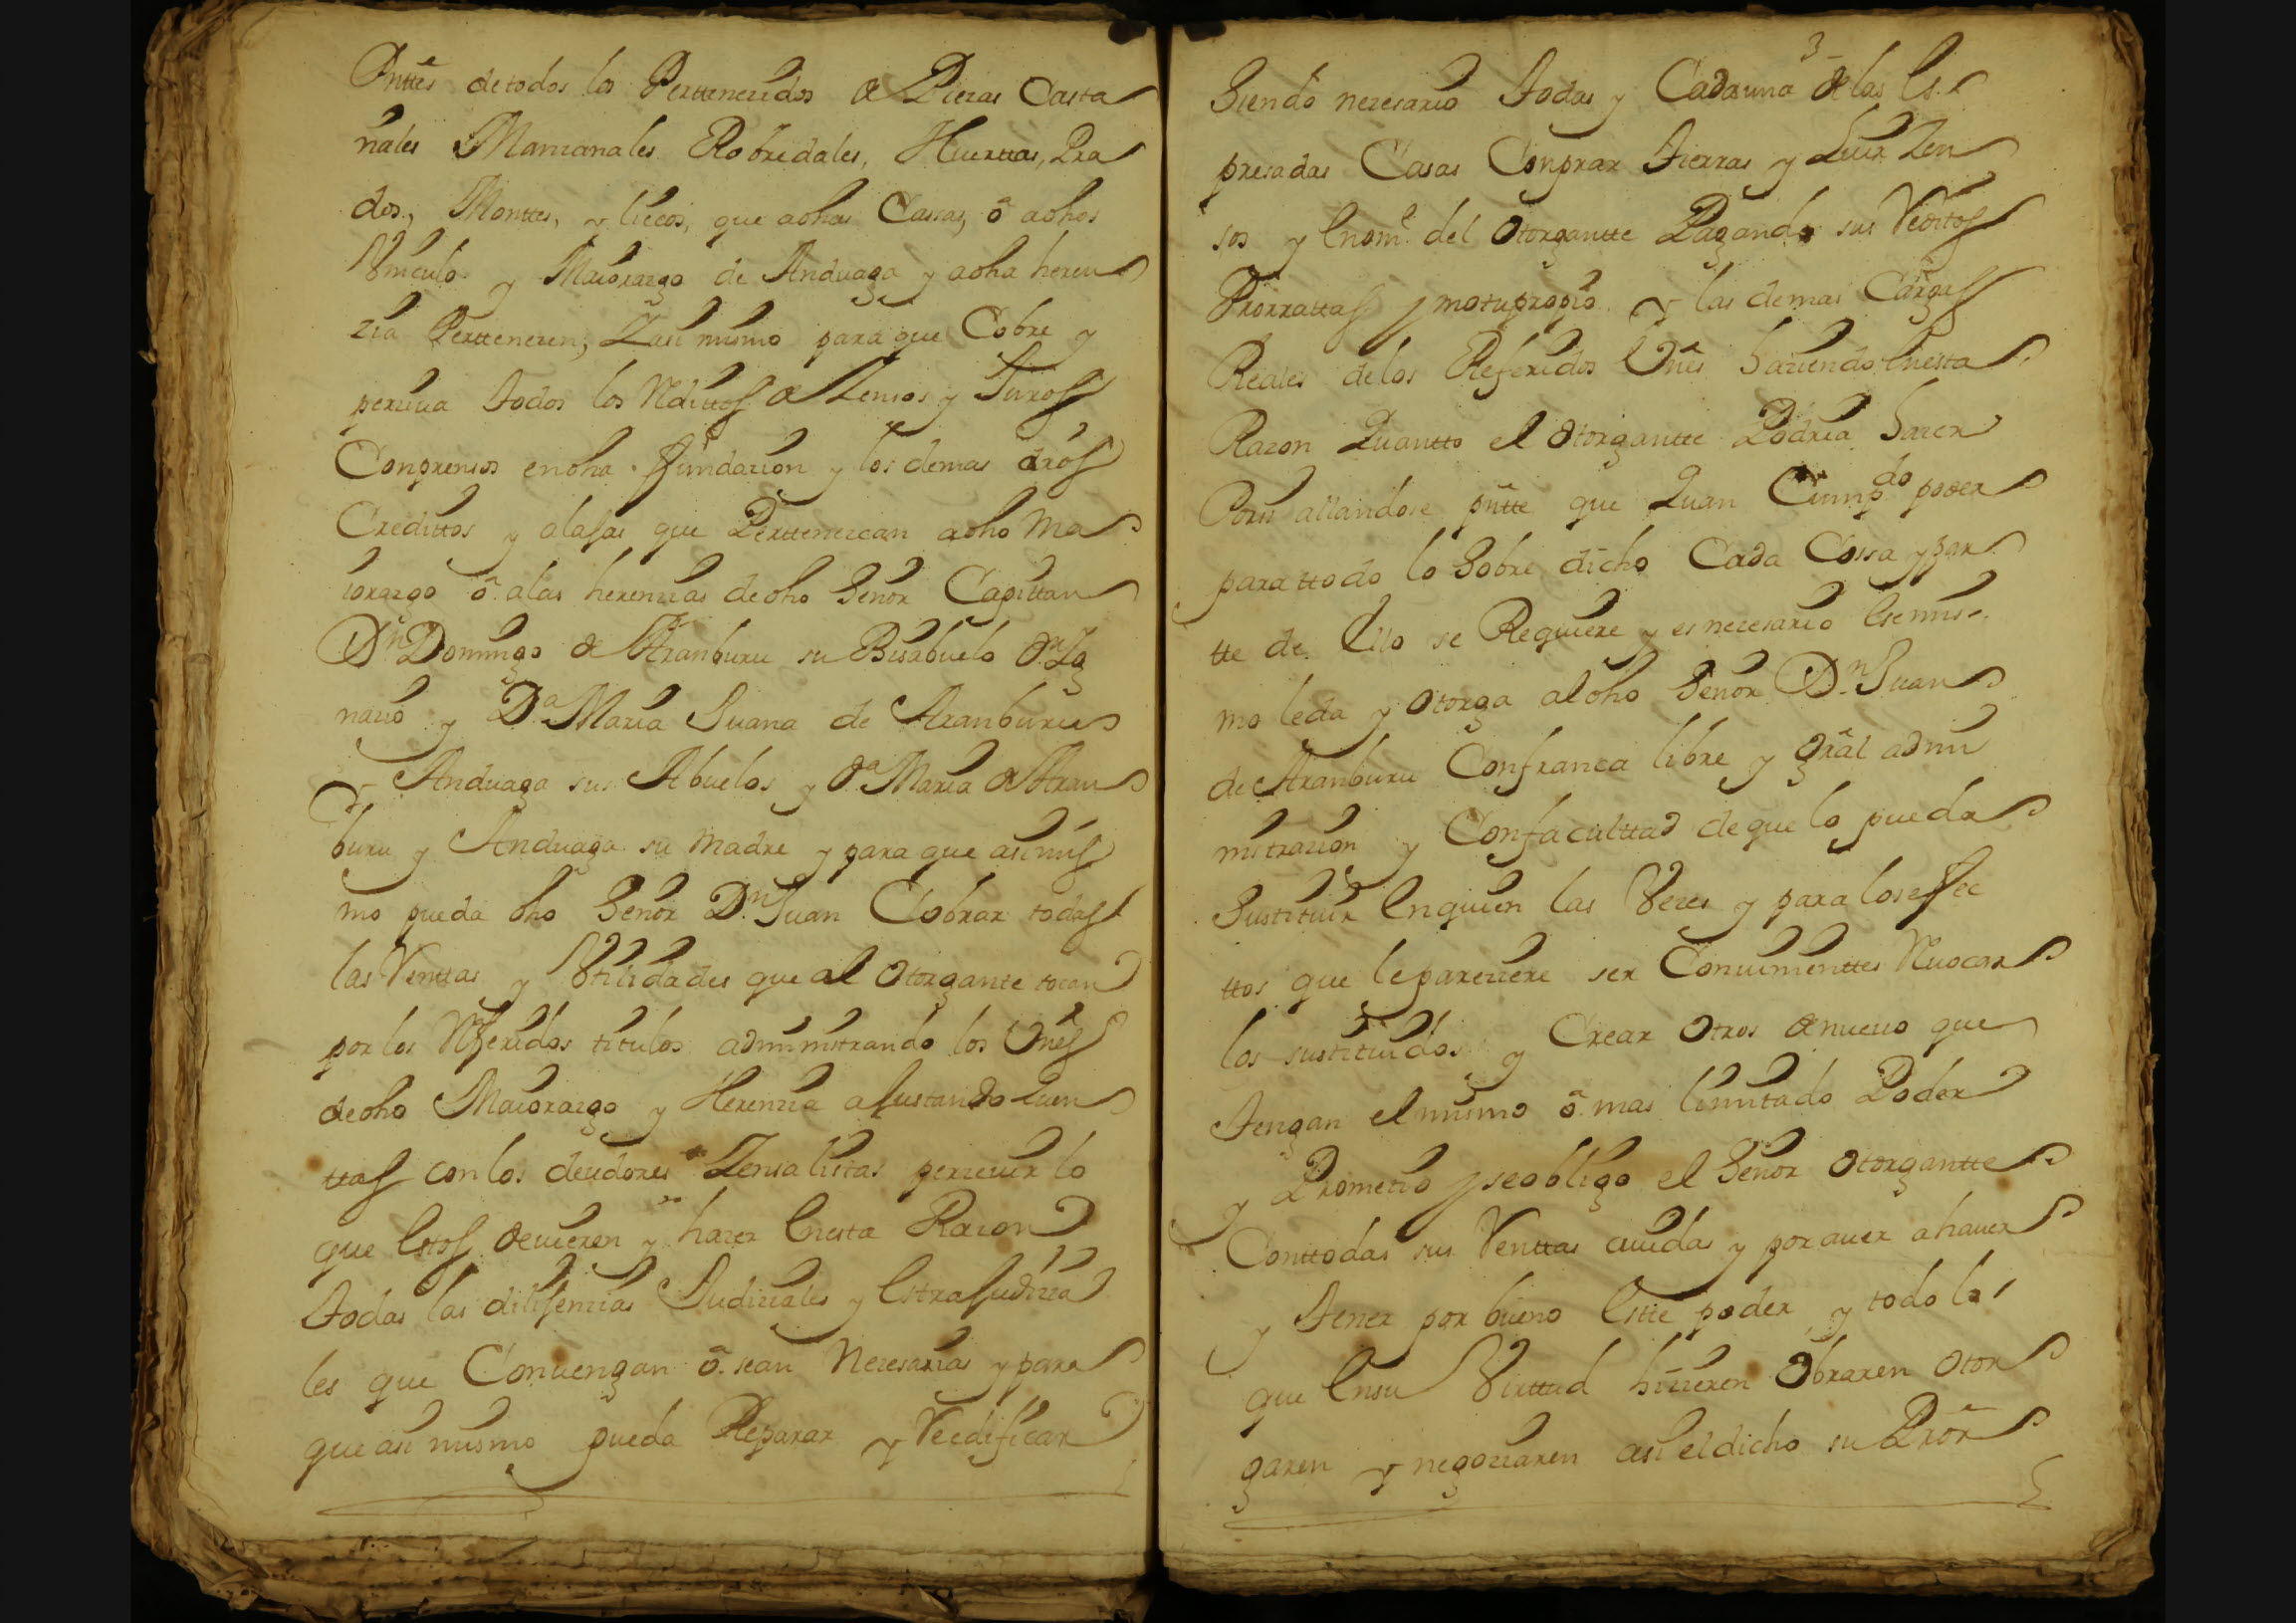 Anttes de todos los Perttenezidos de Piezas Casta
nales Manzanales Robredales, Huerttas, Pra
dos, Monttes, y liecos, que a dhas Cassas, ô a dhos
Vinculo y Maiorazgo de Anduaga y a dha heren
zia Perttenezen, Y asi mismo para que Cobre y
perziua todos los Redittos de Zensos y Juros
Conprensos en dha fundazion y los demas dros
Credittos y alajas que Perttenezcan a dho Ma
iorazgo ô a las herenzias de dho Señor Capittan
Dn Domingo de Aranburu su Bisabuelo Dn Yg
nazio y Da Maria Juana de Aranburu
y Anduaga sus Abuelos y Da Maria de Aran
buru y Anduaga su Madre y para que asi mis
mo pueda dho Señor Dn Juan Cobrar todas
las Renttas y Vtilidades que al Otorgante tocan
por los Referidos titulos administrando los Vnes
de dho Maiorazgo y Herenzia ajustando Cuen
ttas con los deudores Zensalistas perzeuir lo
que Estos deuieren y hazer En esta Razon
todas las dilijenzias Judiziales y Estrajudizia
les que Conuengan ô sean Nezesarias y para
que asi mismo pueda Reparar y Reedificar
3
Siendo nezesario todas y Cada una de las Es
presadas Casas Conprar Tierras y Luir Zen
sos y En nome del Otorgantte Pagando sus Reditos
Prorrattas y motupropio y las demas Cargas
Reales de los Referidos Vnes haziendo En esta
Razon Quantto el Otorgantte Podria hazer
Por si allandose pntte que Quan Cumpdo poder
para ttodo lo Sobre dicho Cada Cossa y par
tte de Ello se Requiere y es nezesario Ese mis
mo le da y Otorga al dho Señor Dn Juan
de Aranburu Con franca libre y gral admi
nistrazion y Con faculttad de que lo pueda
Sustituir En quien las Vezes y para los effec
ttos que le pareziere ser Conuinienttes Reuocar
los sustituidos y Crear Otros de nueuo que
tengan el mismo ô mas limitado Poder
y Prometio y se obligo el Señor Otorgantte
Con ttodas sus Renttas auidas y por auer a hauer
y tener por bueno Estte poder y todo lo
que En su Virttud hizieren Obraren Otor
garen y negoziaren asi el dicho su Pror